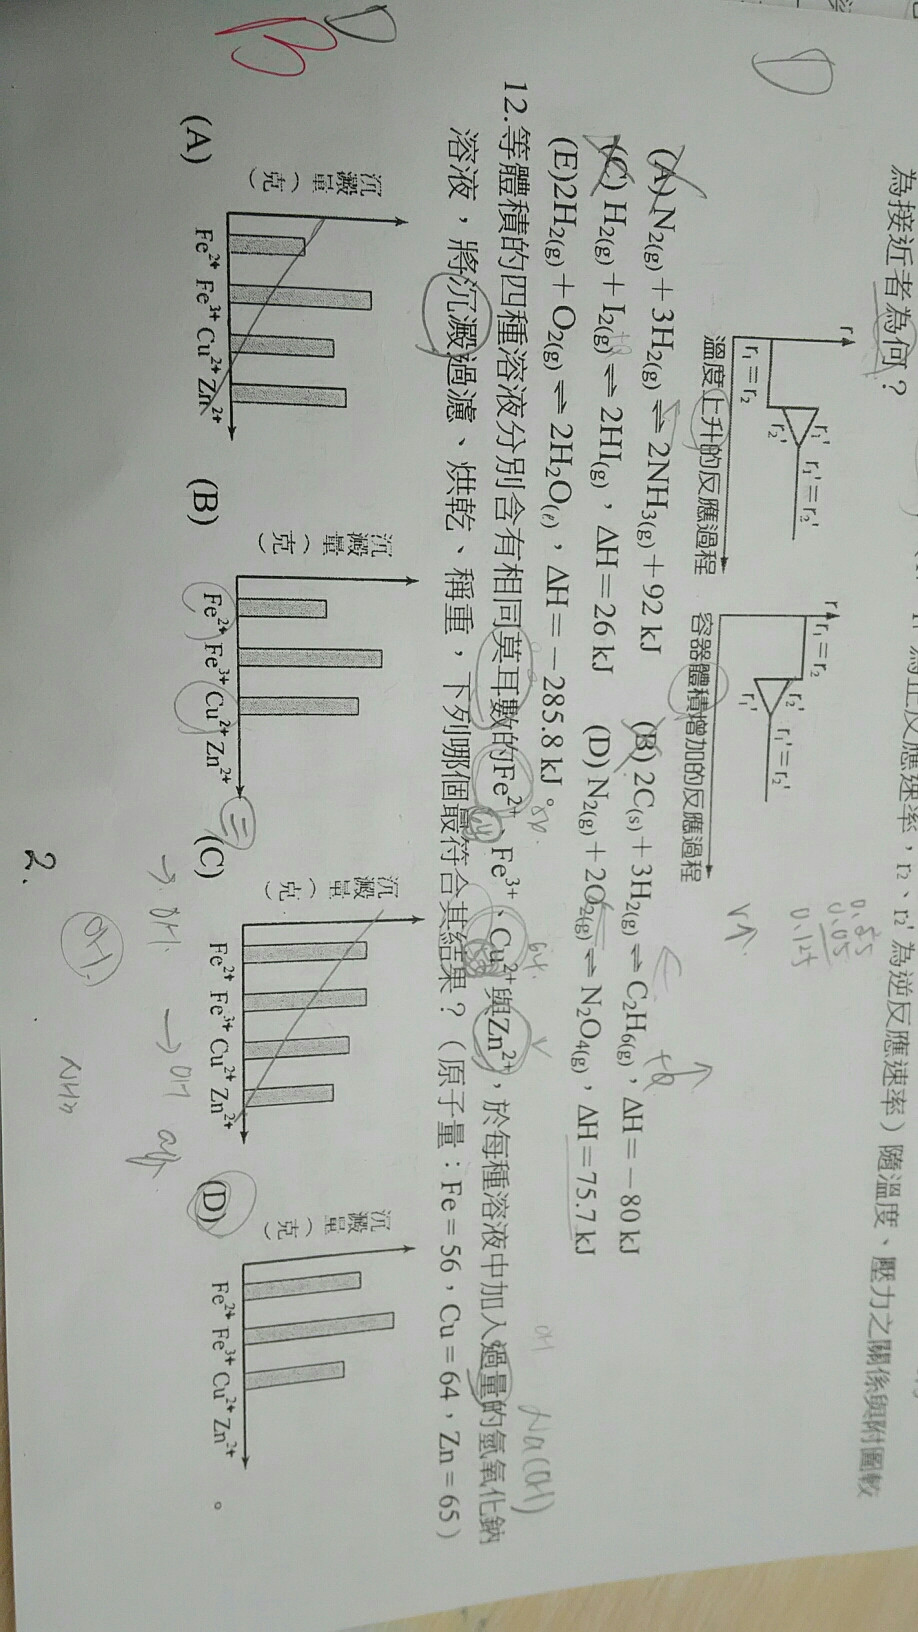 為接近者為何？
r
r₁＝r₂
r₁'
r₂'
r₁'＝r₂'
溫度上升的反應過程
r
r₁＝r₂
r₂'
r₁'
r₁'＝r₂'
容器體積增加的反應過程
(A) N₂(g)＋3H₂(g)⇌2NH₃(g)＋92 kJ
(B) 2C(s)＋3H₂(g)⇌C₂H₆(g)，ΔH＝－80 kJ
(C) H₂(g)＋I₂(g)⇌2HI(g)，ΔH＝26 kJ
(D) N₂(g)＋2O₂(g)⇌N₂O₄(g)，ΔH＝75.7 kJ
(E)2H₂(g)＋O₂(g)⇌2H₂O(ℓ)，ΔH＝－285.8 kJ。
12.等體積的四種溶液分別含有相同莫耳數的Fe²⁺、Fe³⁺、Cu²⁺與Zn²⁺，於每種溶液中加入過量的氫氧化鈉
溶液，將沉澱過濾、烘乾、稱重，下列哪個最符合其結果？（原子量：Fe＝56，Cu＝64，Zn＝65）
(A)
沉澱量（克）
Fe²⁺ Fe³⁺ Cu²⁺ Zn²⁺
(B)
沉澱量（克）
Fe²⁺ Fe³⁺ Cu²⁺ Zn²⁺
(C)
沉澱量（克）
Fe²⁺ Fe³⁺ Cu²⁺ Zn²⁺
(D)
沉澱量（克）
Fe²⁺ Fe³⁺ Cu²⁺ Zn²⁺
。
D
D
B
0.125
V↑
Na(OH)
OH
56
64
三
→OH.
→OH
2.
OH.
NH₃